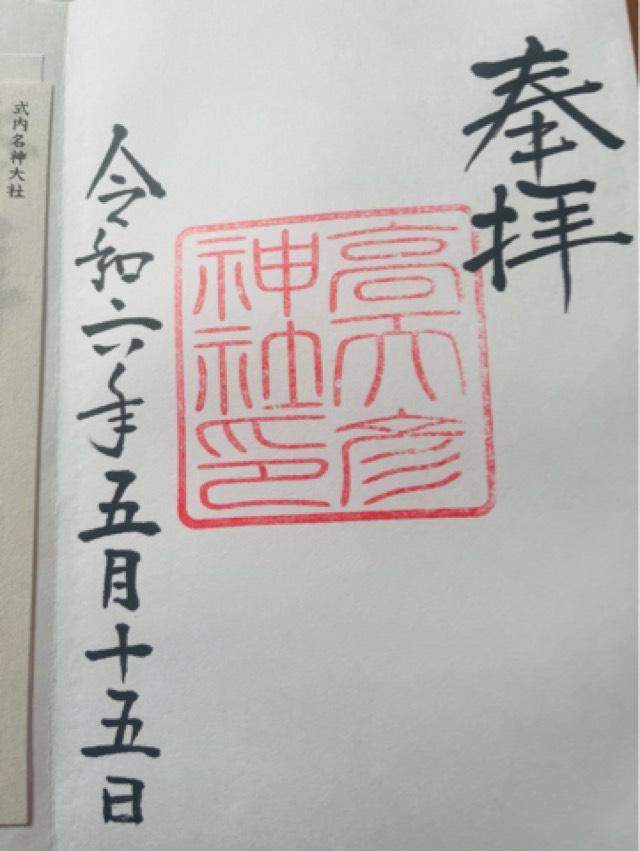 奉拝
高天彦
神社印
令和六年五月十五日
式内名神大社